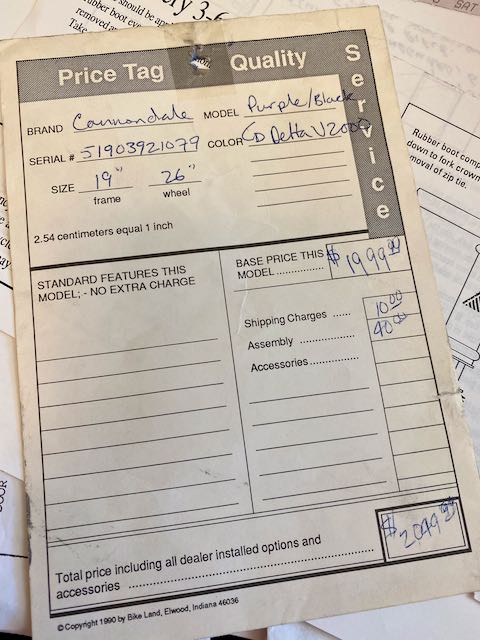 SAT
should be
rubber boot
removed
Take
Price Tag Quality Service
BRAND Cannondale MODEL Purple/Black
SERIAL # 51903921079 COLOR CD Delta V2000
SIZE 19" 26"
frame wheel
2.54 centimeters equal 1 inch
STANDARD FEATURES THIS
MODEL; - NO EXTRA CHARGE
BASE PRICE THIS
MODEL .............. $1999.99
Shipping Charges ..... 10.00
Assembly ................ 40.00
Accessories ...............
Total price including all dealer installed options and
accessories ........................ $2049.99
© Copyright 1990 by Bike Land, Elwood, Indiana 46036
Rubber boot
down to fork crown
removal of zip tie.